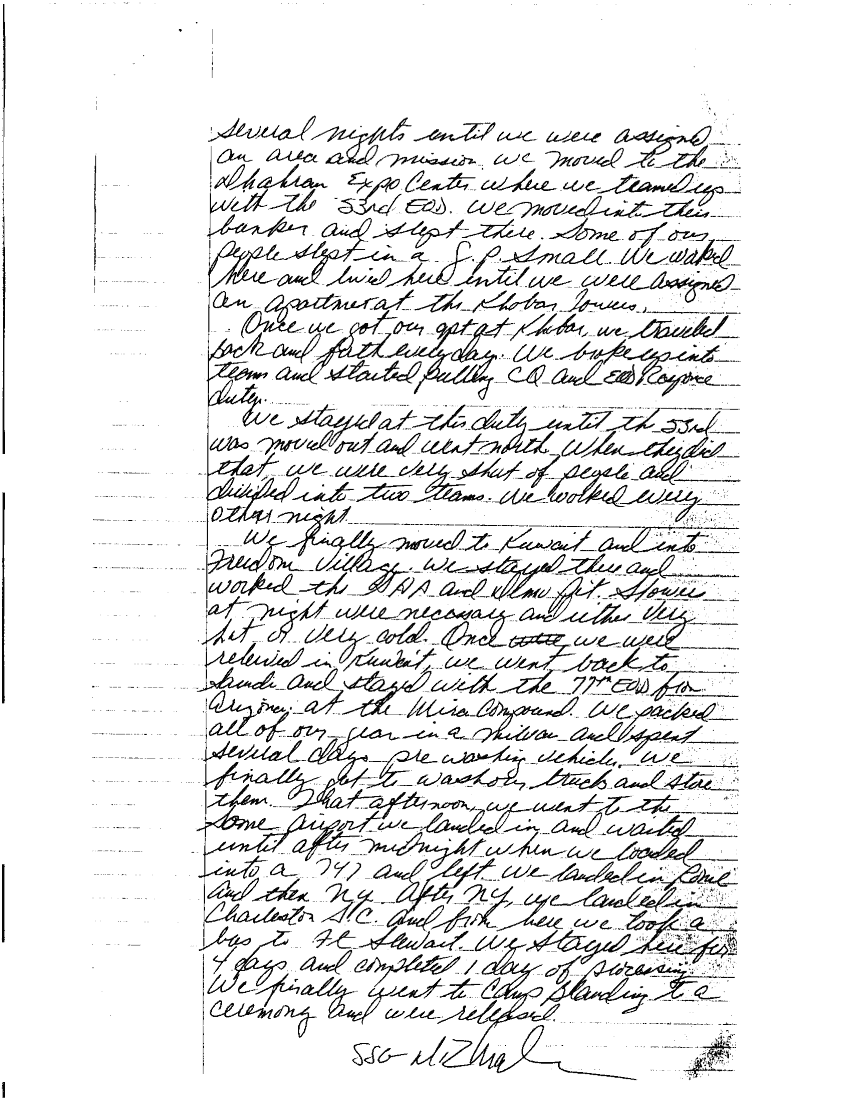 several nights until we were assigned
an area and mission. we moved to the
Dhahran Expo Center where we teamed up
with the 53rd EOD. We moved into their
bunker and slept there. Some of our
people slept in a G.P Small. We worked
here and lived here until we were assigned
an apartment at the Khobar Towers.
Once we got our apt at Khobar, we traveled
back and forth everyday. We broke up into
teams and started pulling CQ and EOD Response
duty.
We stayed at this duty until the 53rd
was moved out and went north. When they did
that we were very short of people and
divided into two teams. We worked every
other night
We finally moved to Kuwait and into
Freedom Village. We stayed there and
worked the and Demo Pit. Showers
at night were necessary and either very
hot or very cold. Once we were
relieved in Kuwait, we went back to
Saudi and stayed with the 77th EOD from
Arizona, at the Mira Compound. We packed
all of our gear in a milvan and spent
several days pre washing vehicles. We
finally got to wash our trucks and store
them. That afternoon, we went to the
same airport we landed in and waited
until after midnight when we loaded
into a 747 and left. We landed in Rome
and then NY. After NY, we landed in
Charleston S.C. and from here we took a
bus to Ft Stewart. We stayed here for
4 days and completed 1 day of processing.
We finally went to Camp Blanding to a
ceremony and were released.
SSG